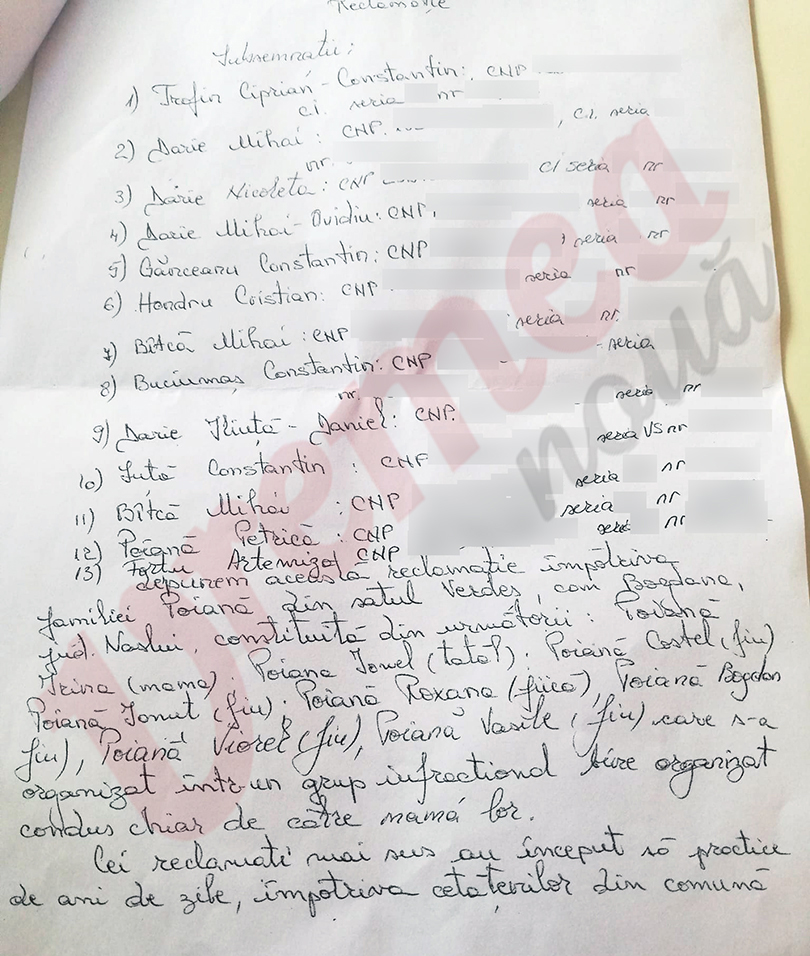 Reclamație
Subsemnatii:
1) Trofin Ciprian-Constantin: CNP
c.i. seria nr
2) Darie Mihai: CNP. , c.i. seria
nr.
3) Darie Nicoleta: CNP ci seria nr
4) Darie Mihai-Ovidiu: CNP, seria nr
5) Gănceanu Constantin: CNP , seria nr
6) Hondru Cristian: CNP seria nr
7) Bîtcă Mihai: CNP seria nr.
8) Buciumaș Constantin: CNP - seria
nr.
9) Darie Iliuță-Daniel: CNP. seria nr
10) Iută Constantin : CNP seria VS nr
11) Bîtcă Mihai : CNP seria nr
12) Poiană Petrică : CNP seria nr
13) Fortu Artemiza CNP seria nr
depunem această reclamatie împotriva
familiei Poiană din satul Verdes, com Bogdana,
jud. Vaslui, constituită din următorii: Poiană
Irina (mama), Poiana Ionel (tată), Poiană Costel (fiu)
Poiană Ionut (fiu), Poiană Roxana (fiică), Poiană Bogdan
fiu), Poiană Viorel (fiu), Poiană Vasile (fiu) care s-a
organizat într-un grup infractional bine organizat
condus chiar de către mamă lor.
Cei reclamati mai sus au început să practice
de ani de zile, împotriva cetatenilor din comună
vremea
nouă